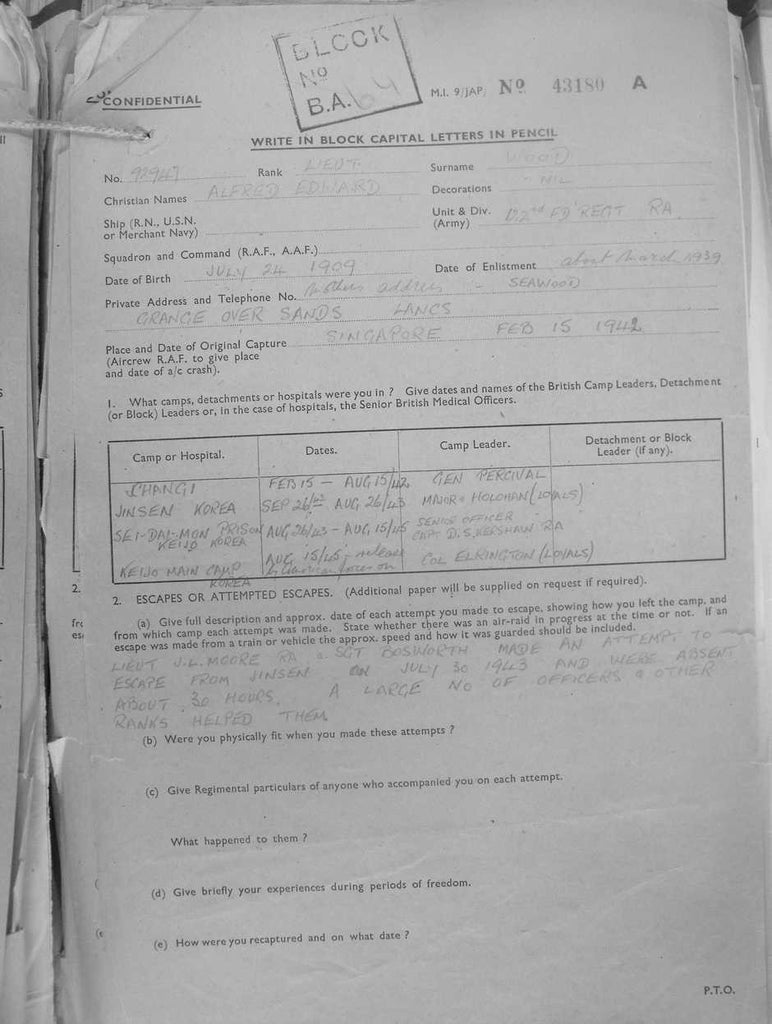 BLOCK
No
B.A. 64
CONFIDENTIAL
M.I. 9/JAP/ No 43180 A
WRITE IN BLOCK CAPITAL LETTERS IN PENCIL
No. 92947 Rank LIEUT. Surname WOOD
Christian Names ALFRED EDWARD Decorations NIL
Ship (R.N., U.S.N. or Merchant Navy)
Unit & Div. (Army) 122nd FD REGT RA
Squadron and Command (R.A.F., A.A.F.)
Date of Birth JULY 24 1909 Date of Enlistment about March 1939
Private Address and Telephone No. mothers address - SEAWOOD
GRANGE OVER SANDS LANCS
Place and Date of Original Capture SINGAPORE FEB 15 1942
(Aircrew R.A.F. to give place
and date of a/c crash).
1. What camps, detachments or hospitals were you in ? Give dates and names of the British Camp Leaders, Detachment
(or Block) Leaders or, in the case of hospitals, the Senior British Medical Officers.
Camp or Hospital. Dates. Camp Leader. Detachment or Block Leader (if any).
CHANGI FEB 15 - AUG 15/42 GEN PERCIVAL
JINSEN KOREA SEP 26/42 AUG 26/43 MAJOR HOLOHAN (LOYALS)
SEI-DAI-MON PRISON KEIJO KOREA AUG 26/43 - AUG, 15/45 SENIOR OFFICER CAPT D.S. KERSHAW RA
KEIJO MAIN CAMP KOREA AUG 15/45 - release COL ELRINGTON (LOYALS)
2. ESCAPES OR ATTEMPTED ESCAPES. (Additional paper will be supplied on request if required).
(a) Give full description and approx. date of each attempt you made to escape, showing how you left the camp, and
from which camp each attempt was made. State whether there was an air-raid in progress at the time or not. If an
escape was made from a train or vehicle the approx. speed and how it was guarded should be included.
LIEUT J.L. MOORE RA & SGT BOSWORTH MADE AN ATTEMPT TO
ESCAPE FROM JINSEN ON JULY 30 1943 AND WERE ABSENT
ABOUT 30 HOURS. A LARGE NO OF OFFICERS & OTHER
RANKS HELPED THEM
(b) Were you physically fit when you made these attempts ?
(c) Give Regimental particulars of anyone who accompanied you on each attempt.
What happened to them ?
(d) Give briefly your experiences during periods of freedom.
(e) How were you recaptured and on what date ?
P.T.O.